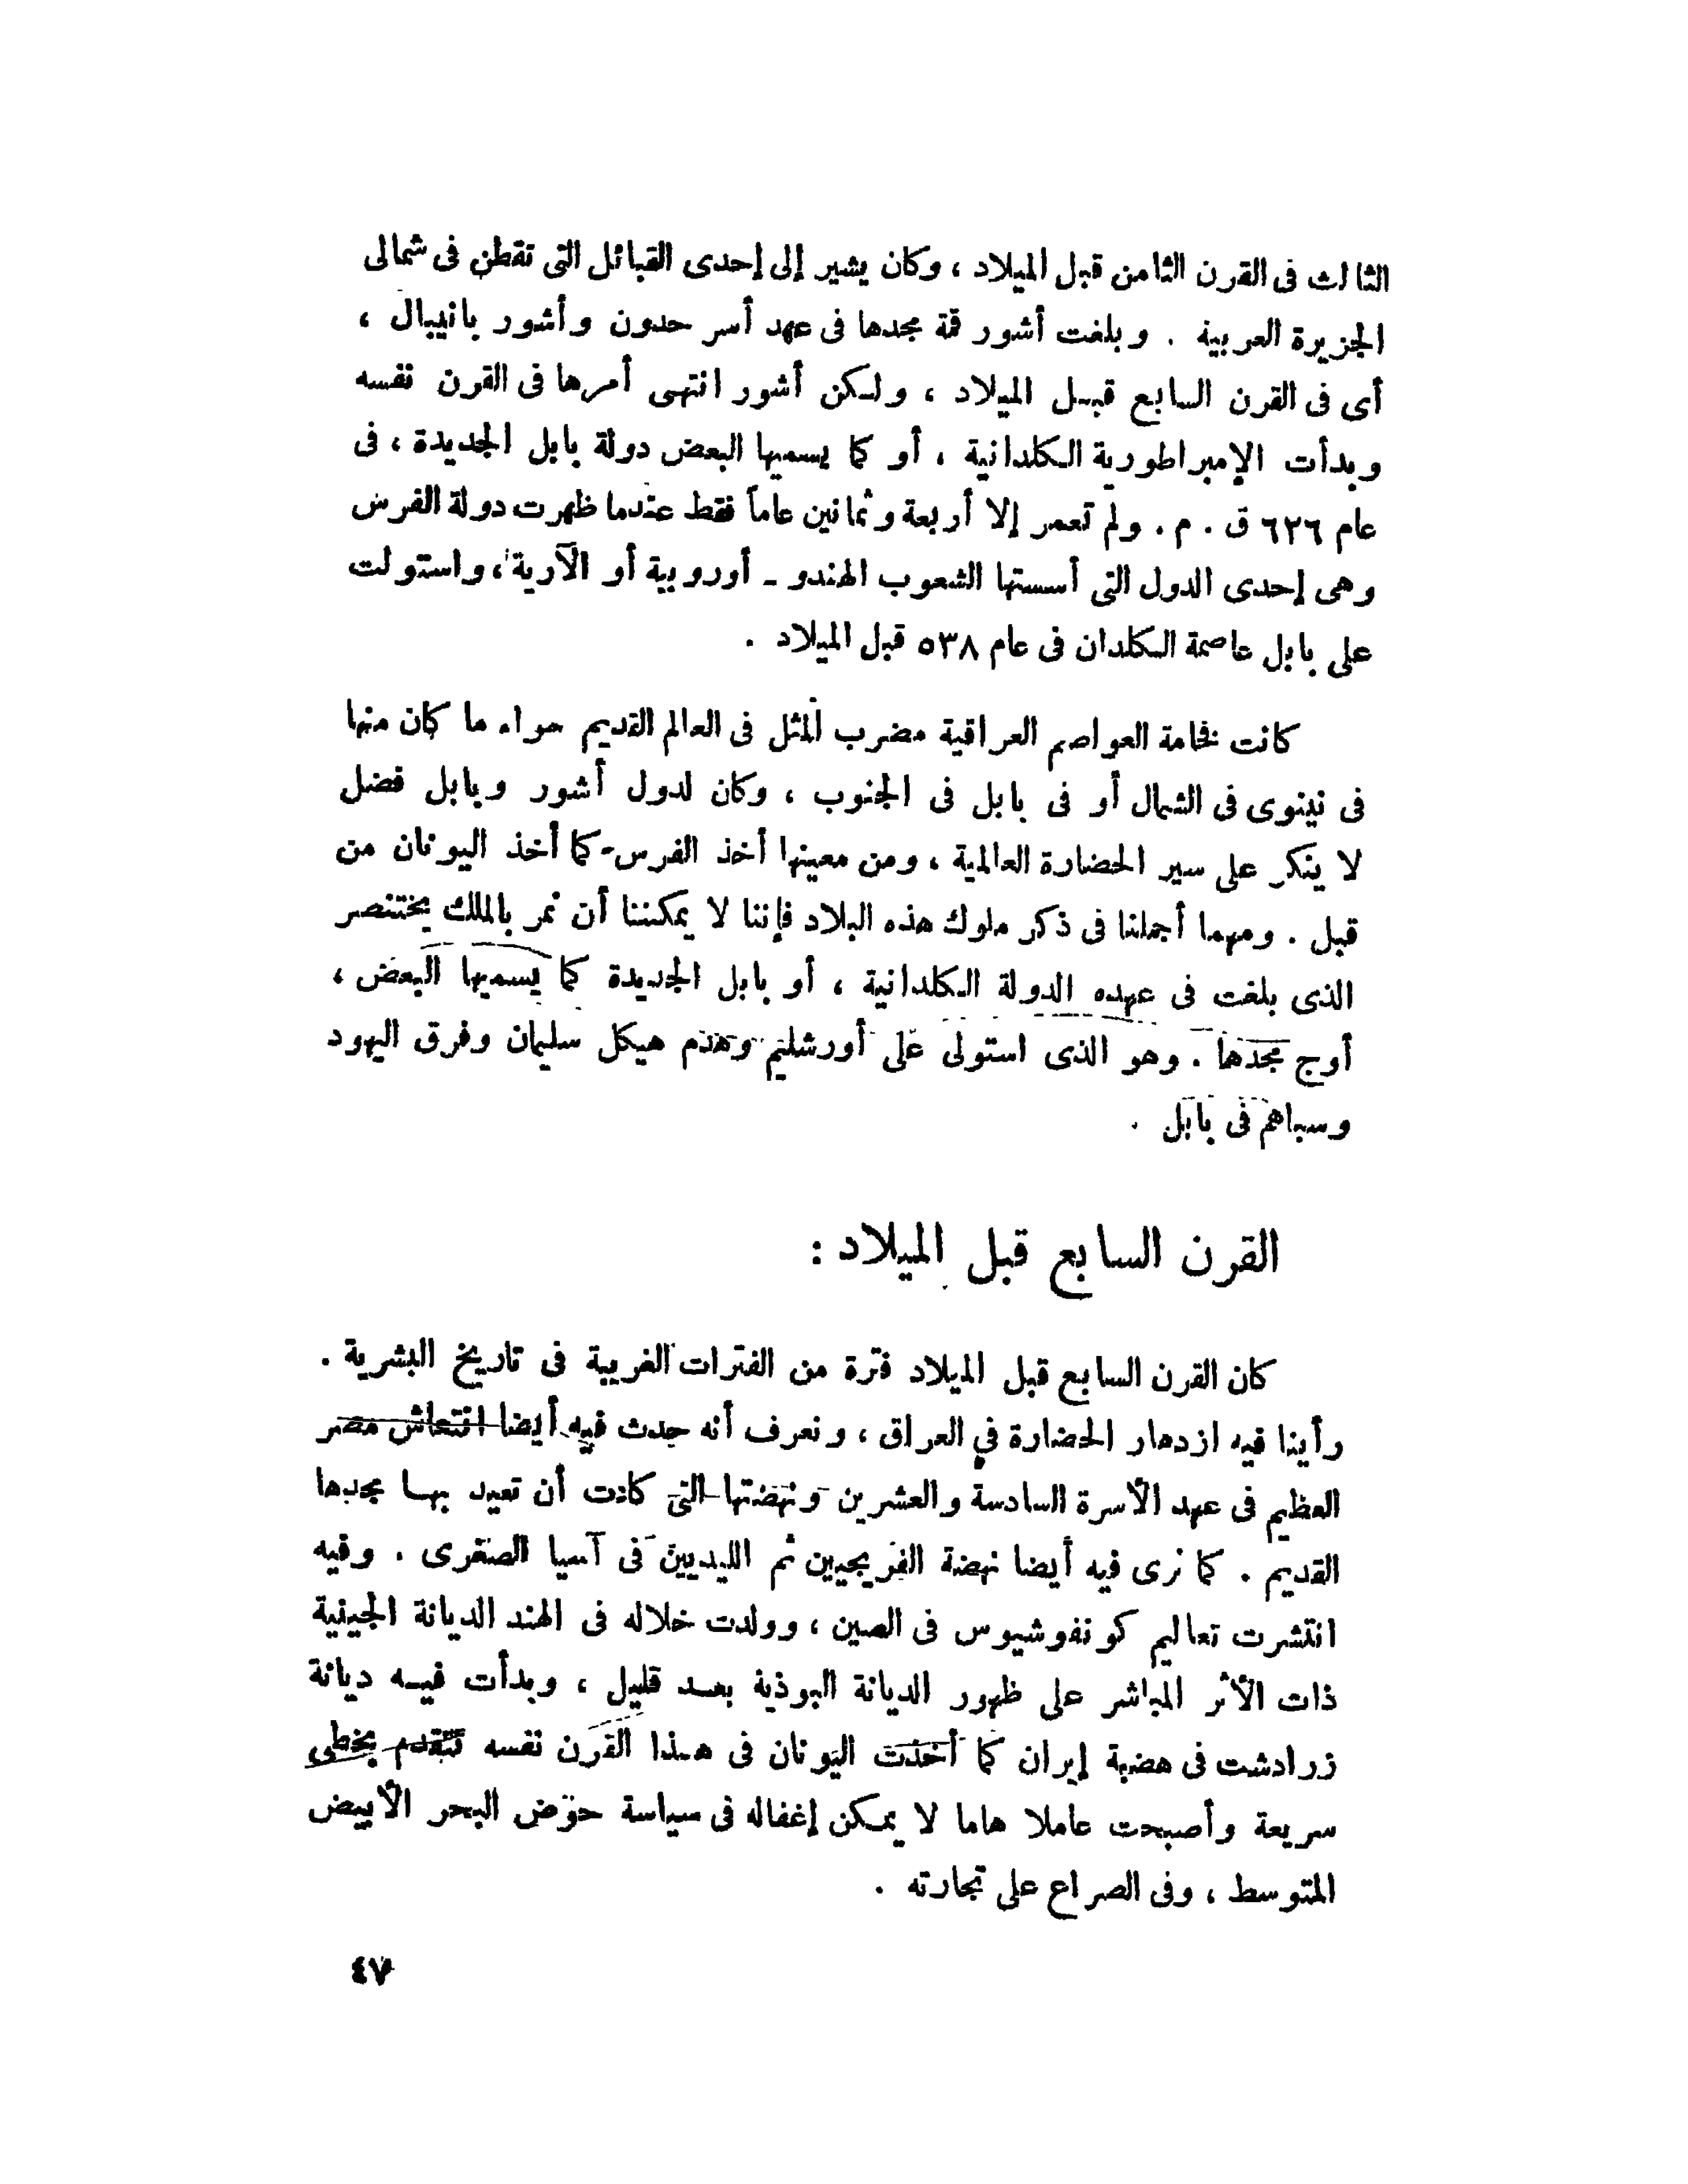 الثالث فى القرن الثامن قبل الميلاد ، وكان يشير إلى إحدى القبائل التى تقطن فى شمالى
الجزيرة العربية . وبلغت أشور قمة مجدها فى عهد أسر حدون وأشور بانيبال ،
أى فى القرن السابع قبل الميلاد ، ولكن أشور انتهى أمرها فى القرن نفسه
وبدأت الإمبراطورية الكلدانية ، أو كما يسميها البعض دولة بابل الجديدة ، فى
عام ٦٢٦ ق . م . ولم تعمر إلا أربعة وثمانين عاماً فقط عندما ظهرت دولة الفرس
وهى إحدى الدول التى أسستها الشعوب الهندو ـ أوروبية أو الآرية ، واستولت
على بابل عاصمة الكلدان فى عام ٥٣٨ قبل الميلاد .
كانت فخامة العواصم العراقية مضرب المثل فى العالم القديم سواء ما كان منها
فى نينوى فى الشمال أو فى بابل فى الجنوب ، وكان لدول أشور وبابل فضل
لا ينكر على سير الحضارة العالمية ، ومن معينها أخذ الفرس كما أخذ اليونان من
قبل . ومهما أجملنا فى ذكر ملوك هذه البلاد فإننا لا يمكننا أن نمر بالملك بختنصر
الذى بلغت فى عهده الدولة الكلدانية ، أو بابل الجديدة كما يسميها البعض ،
أوج مجدها . وهو الذى استولى على أورشليم وهدم هيكل سليمان وفرق اليهود
وسباهم فى بابل .
القرن السابع قبل الميلاد :
كان القرن السابع قبل الميلاد فترة من الفترات الغريبة فى تاريخ البشرية .
رأينا فيه ازدهار الحضارة في العراق ، ونعرف أنه حدث فيه أيضا انتعاش مصر
العظيم فى عهد الأسرة السادسة والعشرين ونهضتها التى كادت أن تعيد بها مجدها
القديم . كما نرى فيه أيضا نهضة الفريجيين ثم الليديين فى آسيا الصغرى . وفيه
انتشرت تعاليم كونفوشيوس فى الصين ، وولدت خلاله فى الهند الديانة الجينية
ذات الأثر المباشر على ظهور الديانة البوذية بعد قليل ، وبدأت فيه ديانة
زرادشت فى هضبة إيران كما أخذت اليونان فى هذا القرن نفسه تتقدم بخطى
سريعة وأصبحت عاملا هاما لا يمكن إغفاله فى سياسة حوض البحر الأبيض
المتوسط ، وفى الصراع على تجارته .
٤٧